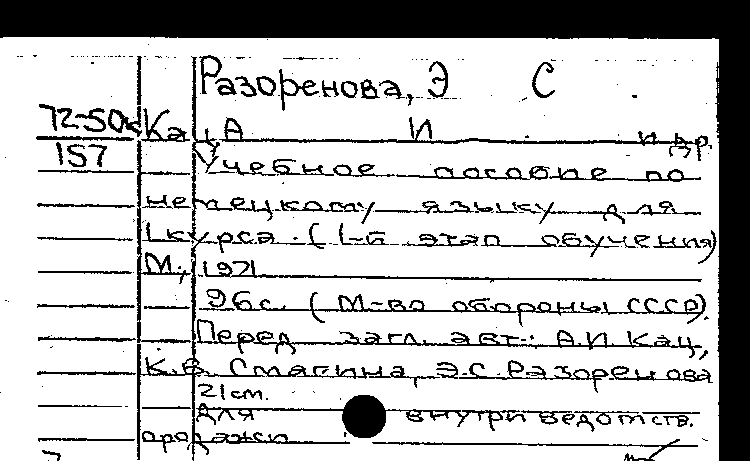 Разоренова, Э С
72-50к Кац, А И и др.
157
Учебное пособие по
немецкому языку для
1 курса. (1-й этап обучения)
М., 1971
96с. (М-во обороны СССР).
Перед загл. авт.: А.И. Кац,
К.В. Смагина, Э.С. Разоренова
21см.
Для внутриведомств.
продажи